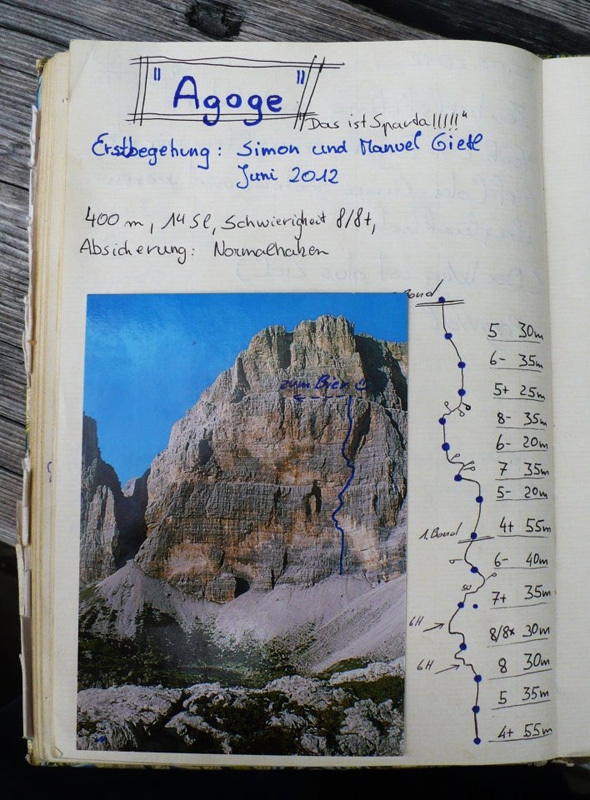 "Agoge"
"Das ist Sparta!!!!!"
Erstbegehung: Simon und Manuel Gietl
Juni 2012
400 m, 14 Sl, Schwierigkeit 8/8+,
Absicherung: Normalhaken
zum Bier
Band
5 30m
6- 35m
5+ 25m
8- 35m
6- 20m
7 35m
5- 20m
4+ 55m
1. Band
6- 40m
SU
7+ 35m
6H
8/8+ 30m
6H
8 30m
5 35m
4+ 55m